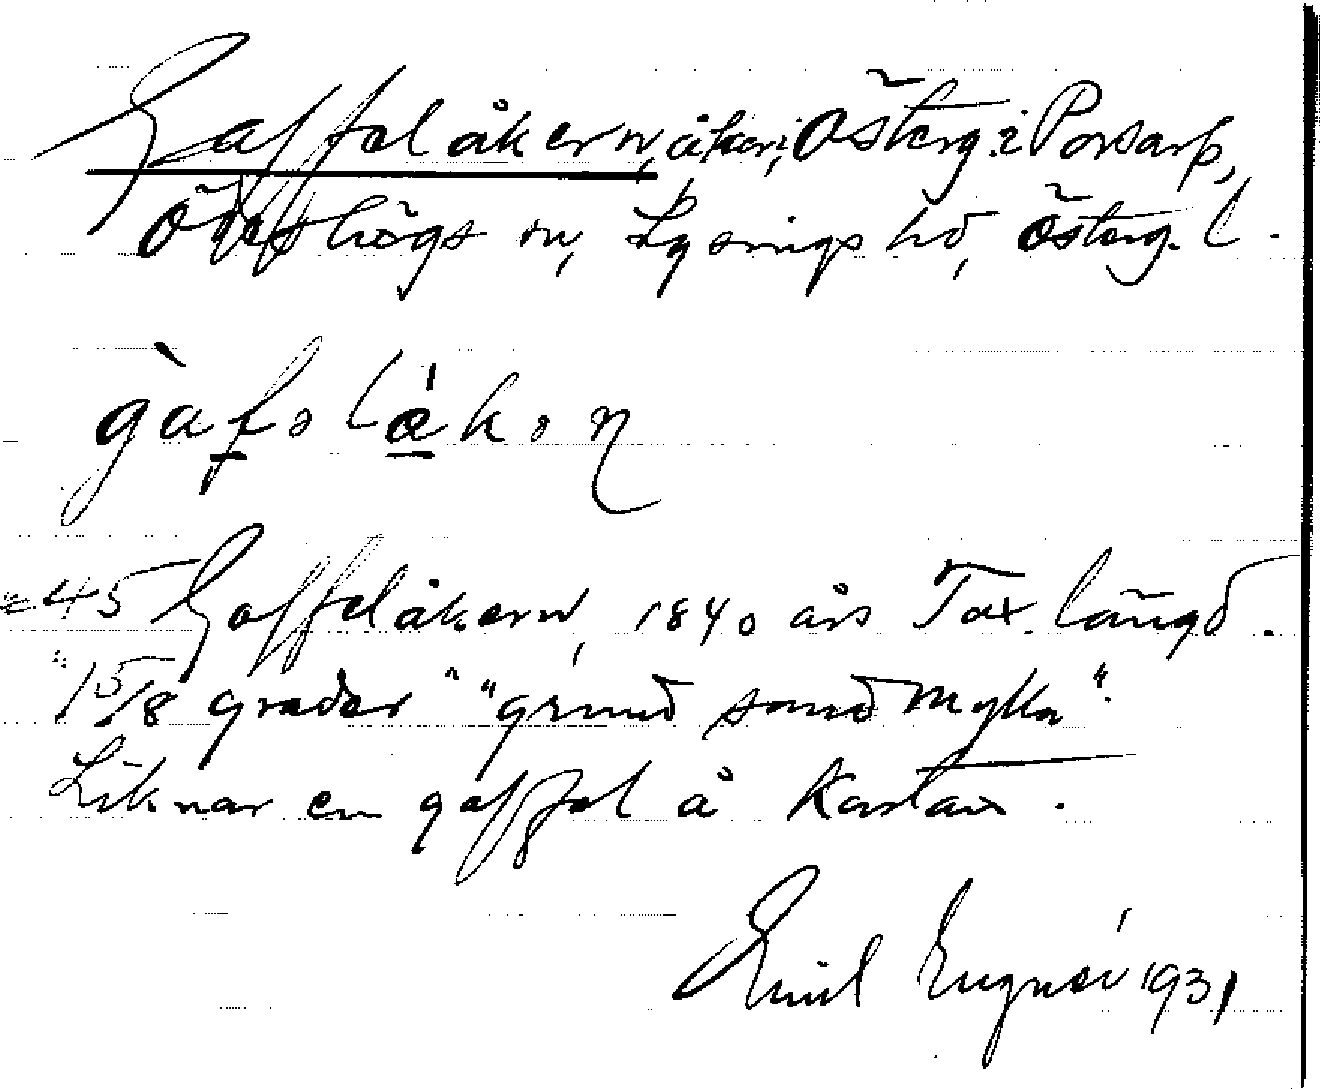 Gaffelåkern, åker i Österg. i Porsarp,
Ödeshögs sn, Lysings hd, Österg. l.
gàfəlåkəṇ
=45 Gaffelåkern, 1840 års Tax. längd.
"15/8 grader" "grund sandmylla".
Liknar en gaffel å kartan.
Emil Engnér 1931